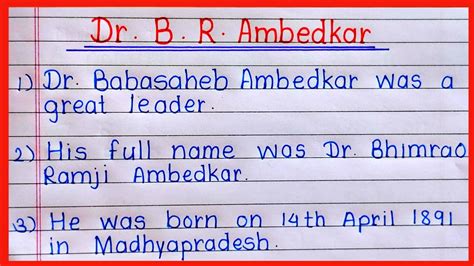 Dr. B. R. Ambedkar
1) Dr. Babasaheb Ambedkar was a
great leader.
2) His full name was Dr. Bhimrao
Ramji Ambedkar.
3) He was born on 14th April 1891
in Madhyapradesh.